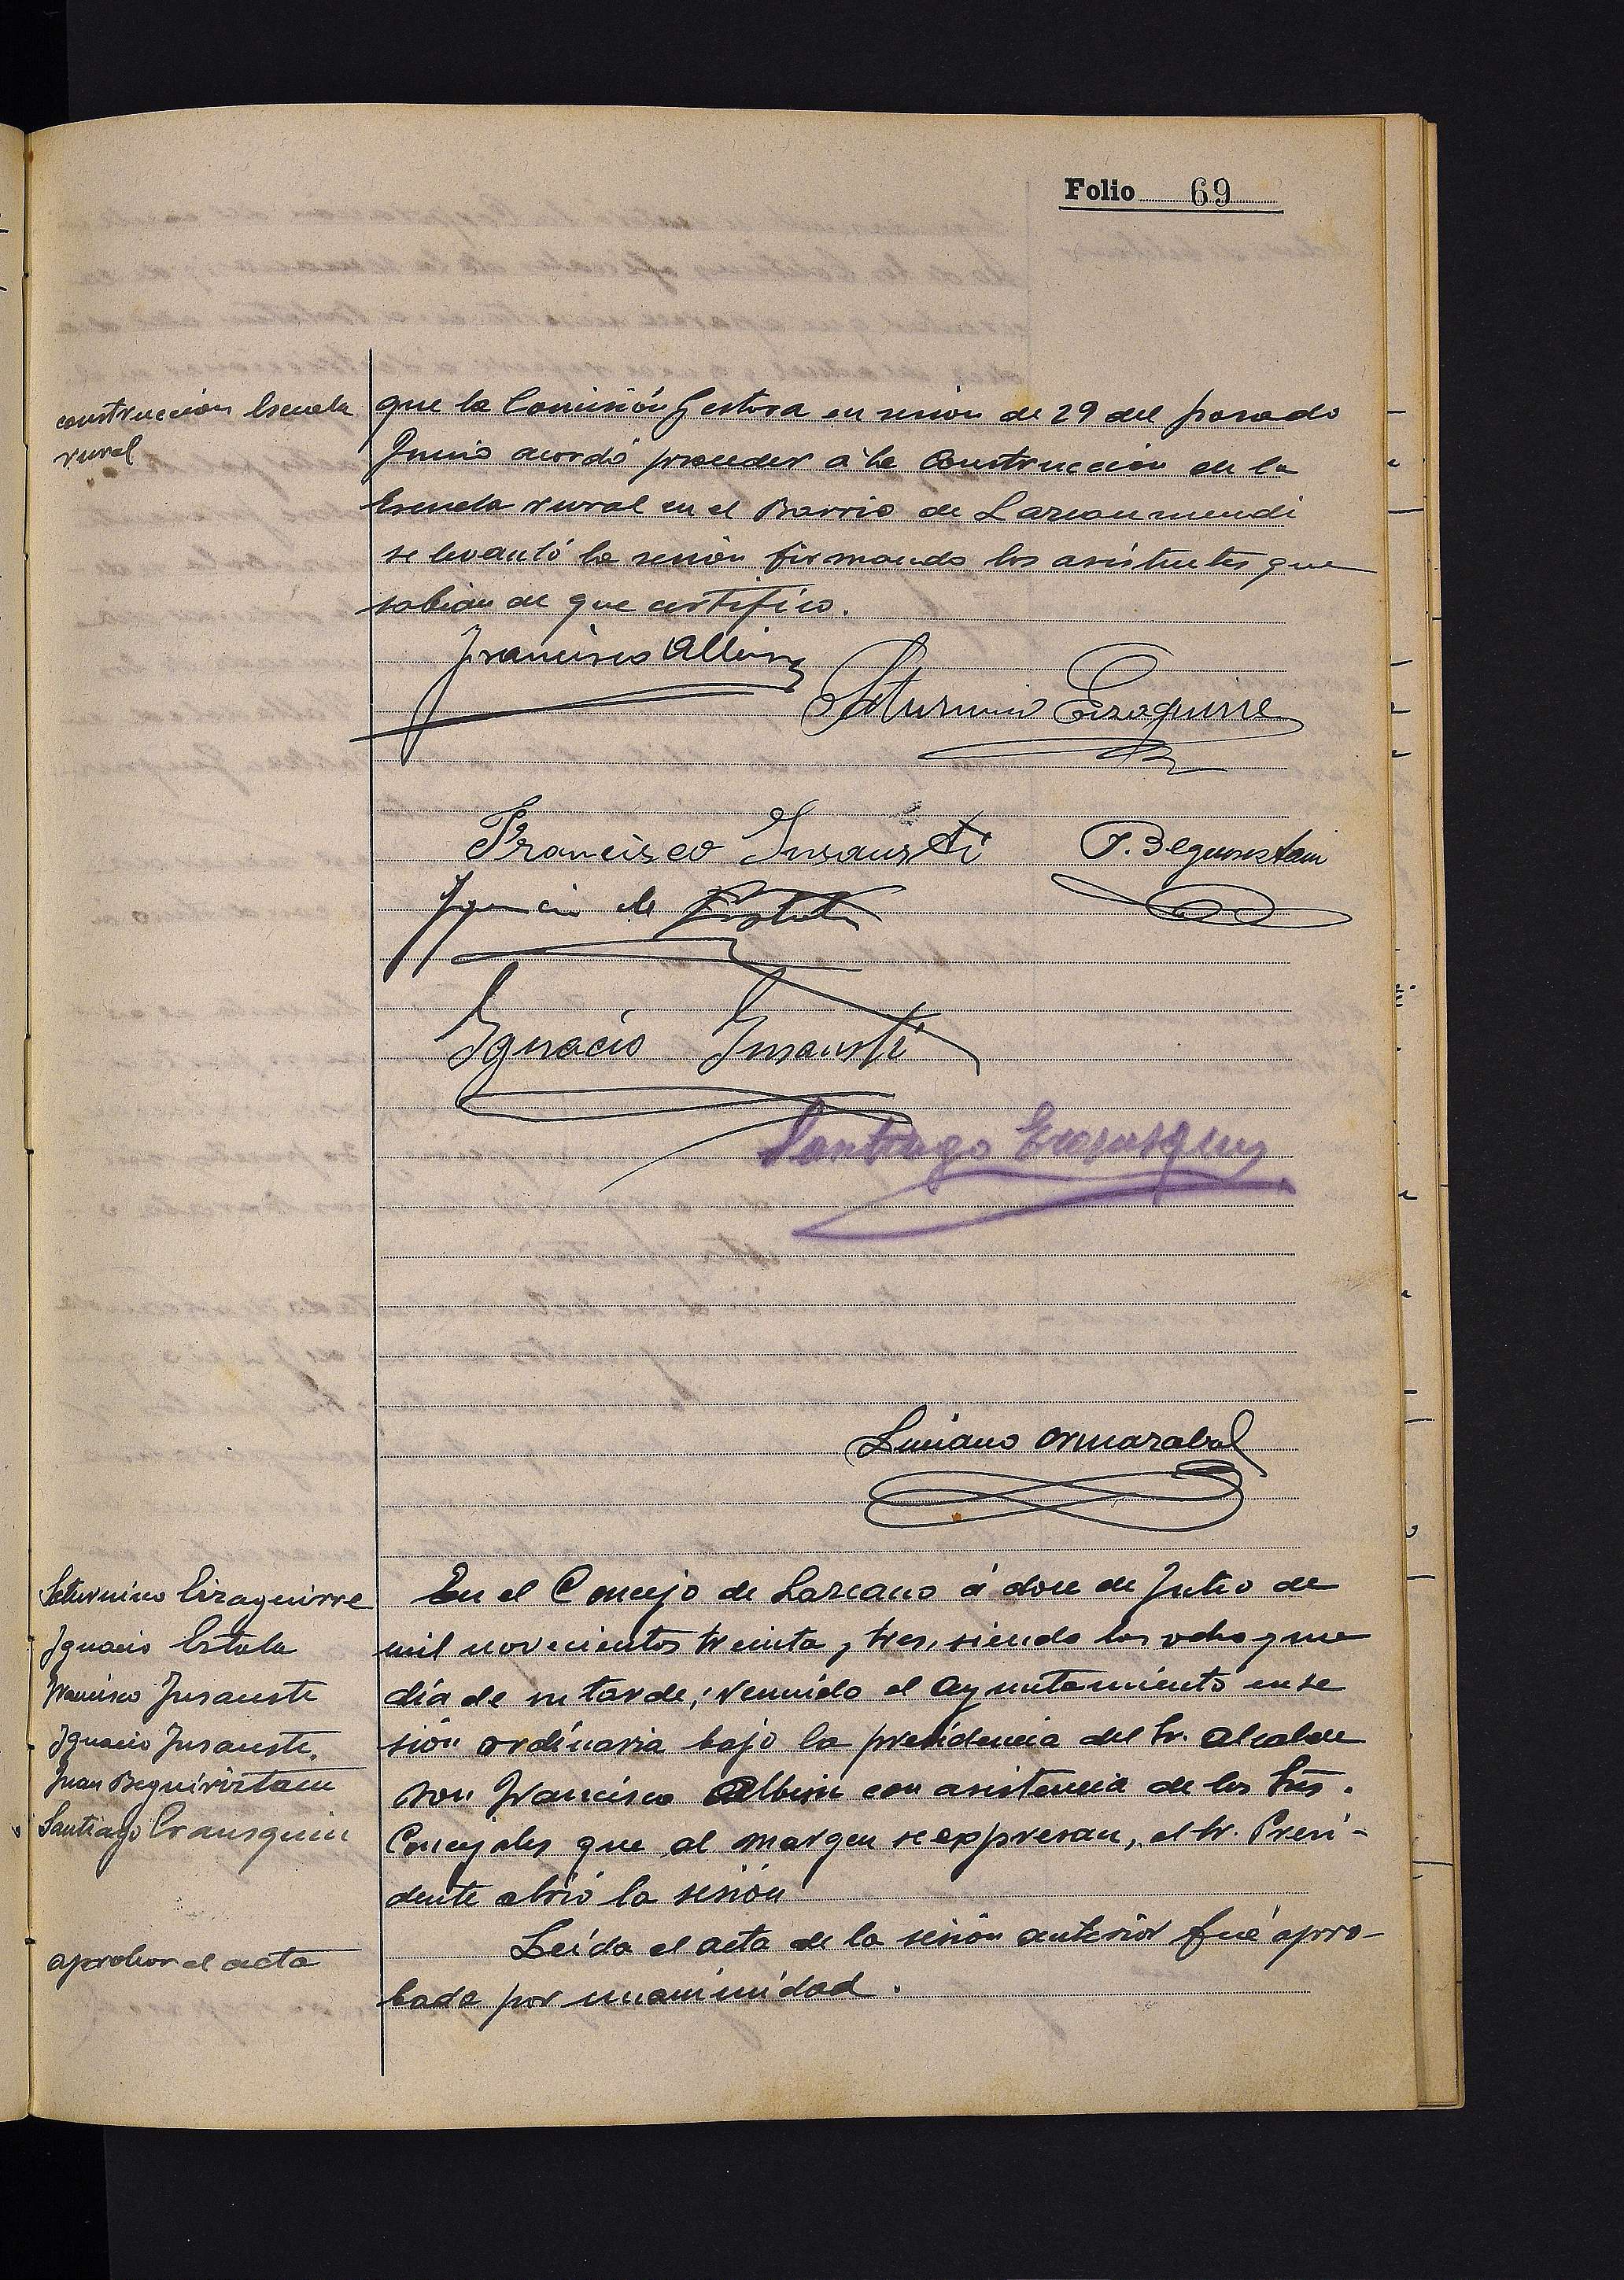 Folio 69
construccion Escuela
rural
que la Comisión Gestora en sesion de 29 del pasado
Junio acordó proceder á la Construccion de la
Escuela rural en el Barrio de Lazcaumendi
se levantó la sesión firmando los asistentes que
sabian de que certifico.
Francisco Albisu
Saturnino Eizaguirre
Francisco Insausti
J. Beguiristain
Ignacio de Estala
Ignacio Insausti
Santiago Erausquin
Luciano Ormazabal
Saturnino Eizaguirre
Ignacio Estala
Francisco Insausti
Ignacio Insausti.
Juan Beguiristain
Santiago Erausquin
En el Concejo de Lazcano á doce de Julio de
mil novecientos treinta y tres, siendo las ocho y me
dia de su tarde, reunido el Ayuntamiento en se
sión ordinaria bajo la presidencia del Sr. Alcalde
Don Francisco Albisu con asistencia de los Srs.
Concejales que al margen se expresan, el Sr. Presi-
dente abrió la sesión
aprobar el acta
Leída el acta de la sesión anterior fué apro-
bada por unanimidad.